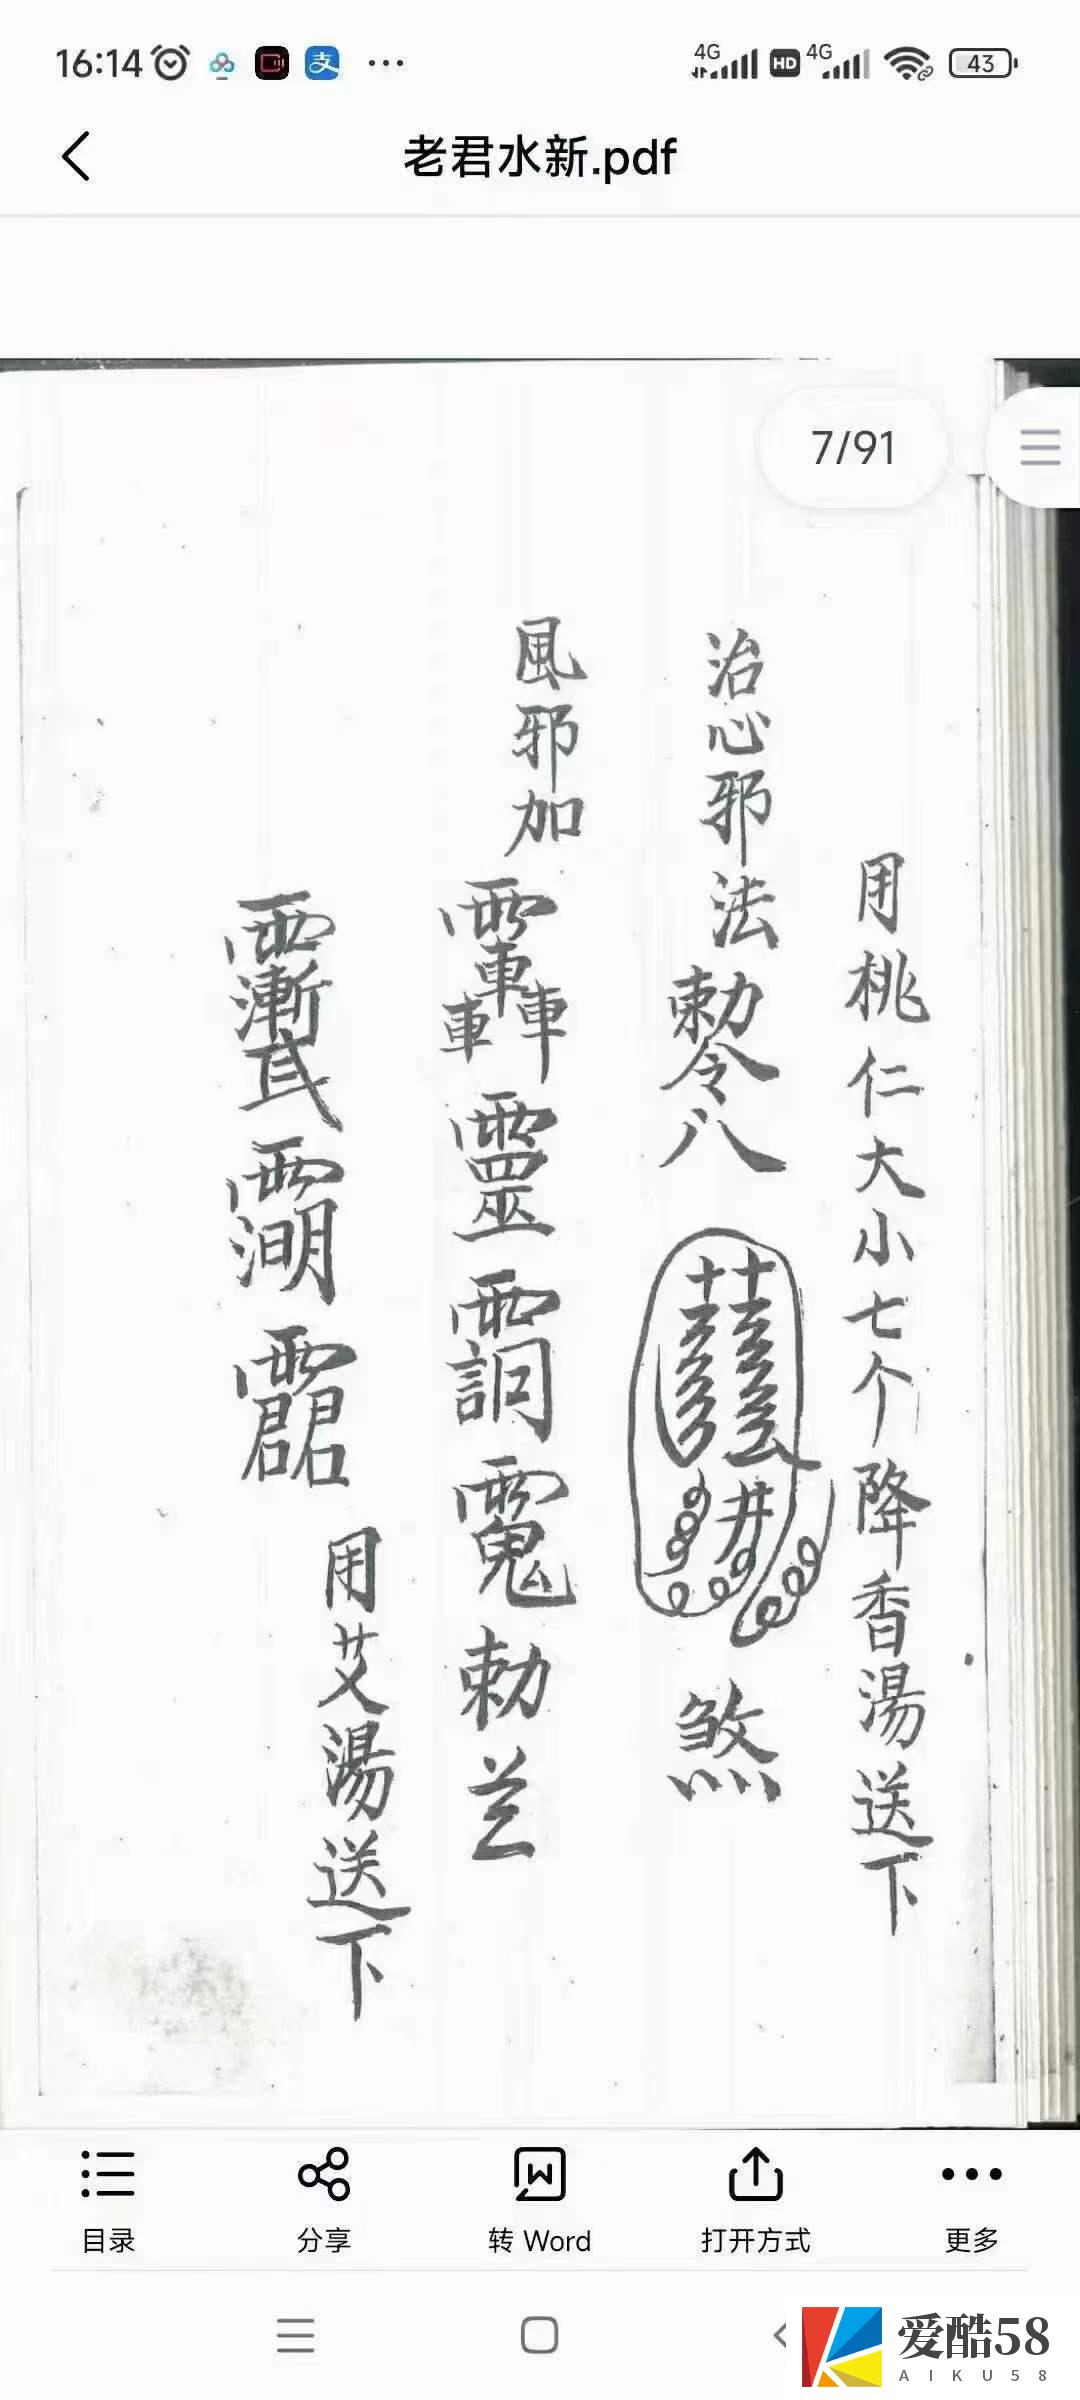 16:14
4G HD 4G 43
老君水新.pdf
7/91
用桃仁大小七个降香湯送下
治心邪法勅令八
煞
風邪加
勅
用艾湯送下
目录
分享
转 Word
打开方式
更多
爱酷58
AIKU58